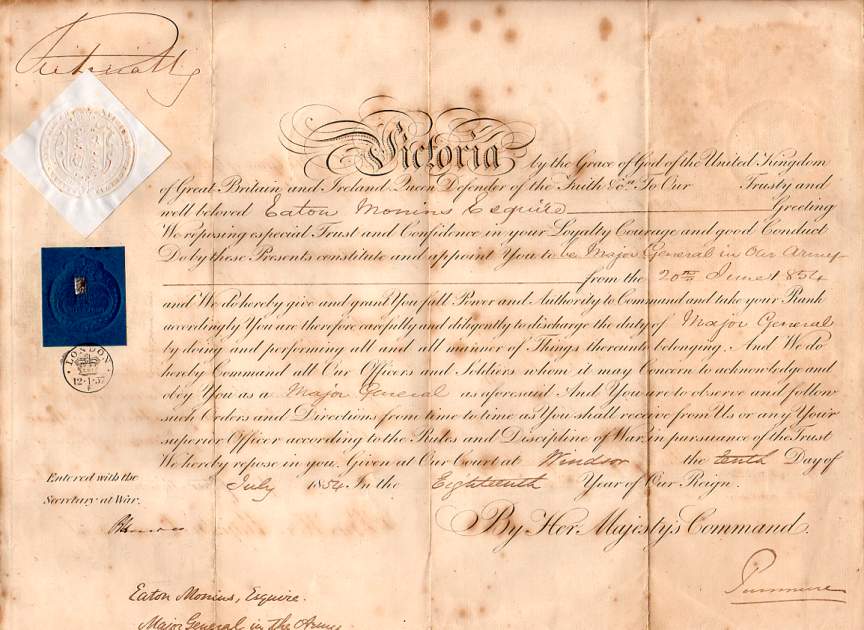 Victoria R
Victoria by the Grace of God of the United Kingdom
of Great Britain and Ireland Queen Defender of the Faith &c. To Our Trusty and
well beloved Eaton Monins Esquire Greeting
We reposing especial Trust and Confidence in your Loyalty Courage and good Conduct
Do by these Presents constitute and appoint You to be Major General in Our Army
from the 20th June 1854
and We do hereby give and grant You full Power and Authority to Command and take your Rank
accordingly You are therefore carefully and diligently to discharge the duty of Major General
by doing and performing all and all manner of Things thereunto belonging. And We do
hereby Command all Our Officers and Soldiers whom it may Concern to acknowledge and
obey You as a Major General as aforesaid And You are to observe and follow
such Orders and Directions from time to time as You shall receive from Us or any Your
superior Officer according to the Rules and Discipline of War, in pursuance of the Trust
We hereby repose in you. Given at Our Court at Windsor the tenth Day of
July 1854. In the Eighteenth Year of Our Reign.
By Her Majesty's Command.
LONDON
12·1·57
Entered with the
Secretary at War.
Panmure
Eaton Monins, Esquire.
Major General in the Army